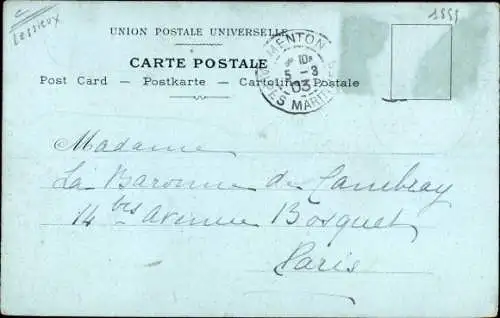 Lessieux
1551
UNION POSTALE UNIVERSELLE
CARTE POSTALE
Post Card — Postkarte — Cartolina Postale
MENTON
10
5 - 3
03
ALPES MARIT
Madame
La Baronne de Cambray
14 bis Avenue Bosquet
Paris